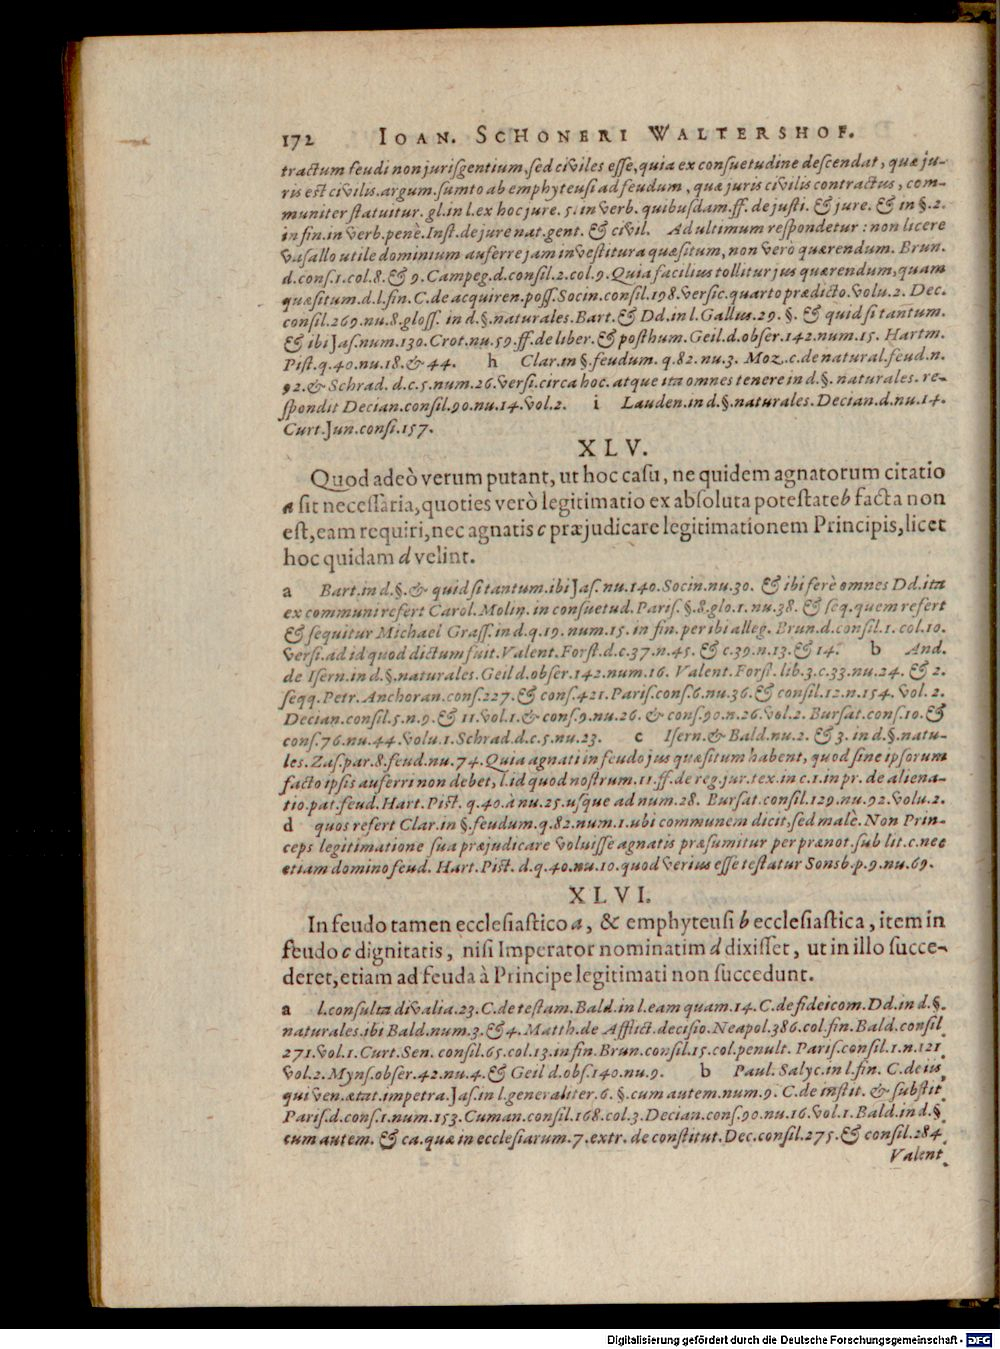 172 IOAN. SCHONERI WALTERSHOF.
tractum feudi non juris gentium, sed civiles esse, quia ex consuetudine descendat, quæ ju-
ris est civilis. argum. sumto ab emphyteusi ad feudum, quæ juris civilis contractus, com-
muniter statuitur. gl. in l. ex hoc jure. 5. in verb. quibusdam. ff. de justi. & jure. & in §. 2.
in fin. in verb. penè. Inst. de jure nat. gent. & civil. Ad ultimum respondetur: non licere
vasallo utile dominium auferre jam investitura quæsitum, non verò quærendum. Brun.
d. cons. 1. col. 8. & 9. Campeg. d. consil. 2. col. 9. Quia facilius tollitur jus quærendum, quam
quæsitum. d. l. fin. C. de acquiren. poss. Socin. consil. 198. versic. quarto prædicto. volu. 2. Dec.
consil. 269. nu. 8. gloss. in d. §. naturales. Bart. & Dd. in l. Gallus. 29. §. & quid si tantum.
& ibi Jas. num. 130. Crot. nu. 59. ff. de liber. & posthum. Geil. d. obser. 142. num. 15. Hartm.
Pist. q. 40. nu. 18. & 44. h Clar. in §. feudum. q. 82. nu. 3. Moz. c. de natural. feud. n.
92. & Schrad. d. c. 5. num. 26. versi. circa hoc. atque ita omnes tenere in d. §. naturales. re-
spondit Decian. consil. 90. nu. 14. vol. 2. i Lauden. in d. §. naturales. Decian. d. nu. 14.
Curt. Jun. consi. 157.
XLV.
Quod adeò verum putant, ut hoc casu, ne quidem agnatorum citatio
a sit necessaria, quoties verò legitimatio ex absoluta potestate b facta non
est, eam requiri, nec agnatis c præjudicare legitimationem Principis, licet
hoc quidam d velint.
a Bart. in d. §. & quid si tantum. ibi Jas. nu. 140. Socin. nu. 30. & ibi ferè omnes Dd. ita
ex communi refert Carol. Molin. in consuetud. Paris. §. 8. glo. 1. nu. 38. & seq. quem refert
& sequitur Michael Grass. in d. q. 19. num. 15. in fin. per ibi alleg. Brun. d. consil. 1. col. 10.
versi. ad id quod dictum fuit. Valent. Forst. d. c. 37. n. 45. & c. 39. n. 13. & 14. b And.
de Isern. in d. §. naturales. Geil d. obser. 142. num. 16. Valent. Forst. lib. 3. c. 33. nu. 24. & 2.
seqq. Petr. Anchoran. cons. 227. & cons. 421. Paris. cons. 6. nu. 36. & consil. 12. n. 154. vol. 2.
Decian. consil. 5. n. 9. & 11. vol. 1. & cons. 9. nu. 26. & cons. 90. n. 26. vol. 2. Bursat. cons. 10. &
cons. 76. nu. 44. volu. 1. Schrad. d. c. 5. nu. 23. c Isern. & Bald. nu. 2. & 3. in d. §. natu-
les. Zas. par. 8. feud. nu. 74. Quia agnati in feudo jus quæsitum habent, quod sine ipsorum
facto ipsis auferri non debet, l. id quod nostrum. 11. ff. de reg. jur. tex. in c. 1. in pr. de aliena-
tio. pat. feud. Hart. Pist. q. 40. à nu. 25. usque ad num. 28. Bursat. consil. 129. nu. 92. volu. 2.
d quos refert Clar. in §. feudum. q. 82. num. 1. ubi communem dicit, sed malè. Non Prin-
ceps legitimatione sua præjudicare voluisse agnatis præsumitur per prænot. sub lit. c. nec
etiam domino feud. Hart. Pist. d. q. 40. nu. 10. quod verius esse testatur Sonsb. p. 9. nu. 69.
XLVI.
In feudo tamen ecclesiastico a, & emphyteusi b ecclesiastica, item in
feudo c dignitatis, nisi Imperator nominatim d dixisset, ut in illo succe-
deret, etiam ad feuda à Principe legitimati non succedunt.
a l. consulta divalia. 23. C. de testam. Bald. in l. eam quam. 14. C. de fideicom. Dd. in d. §.
naturales. ibi Bald. num. 3. & 4. Matth. de Afflict. decisio. Neapol. 386. col. fin. Bald. consil.
271. vol. 1. Curt. Sen. consil. 65. col. 13. in fin. Brun. consil. 15. col. penult. Paris. consil. 1. n. 121.
vol. 2. Myns. obser. 42. nu. 4. & Geil d. obs. 140. nu. 9. b Paul. Salyc. in l. fin. C. de iis
qui ven. ætat. impetra. Jas. in l. generaliter. 6. §. cum autem. num. 9. C. de instit. & substit.
Paris. d. cons. 1. num. 153. Cuman. consil. 168. col. 3. Decian. cons. 90. nu. 16. vol. 1. Bald. in d. §.
cum autem. & ca. quæ in ecclesiarum. 7. extr. de constitut. Dec. consil. 275. & consil. 284.
Valent.
Digitalisierung gefördert durch die Deutsche Forschungsgemeinschaft - DFG